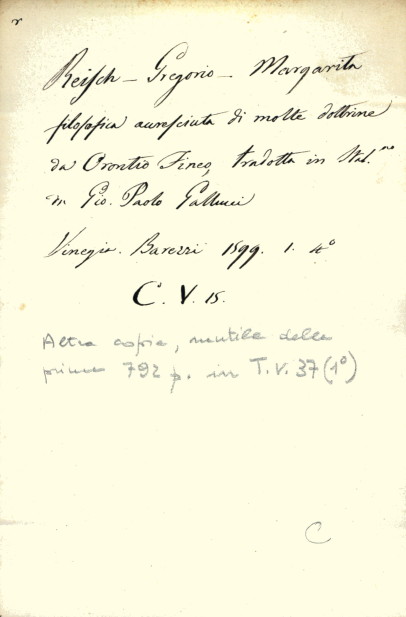 r
Reisch – Gregorio – Margarita
filosofica accresciuta di molte dottrine
da Orontio Fineo, tradotta in Ital.no
da Gio. Paolo Gallucci
Vinegia. Barezzi 1599. 1. 4º
C. V. 15.
Altra copia, mutila delle
prime 792 p. in T. V. 37 (1º)
C